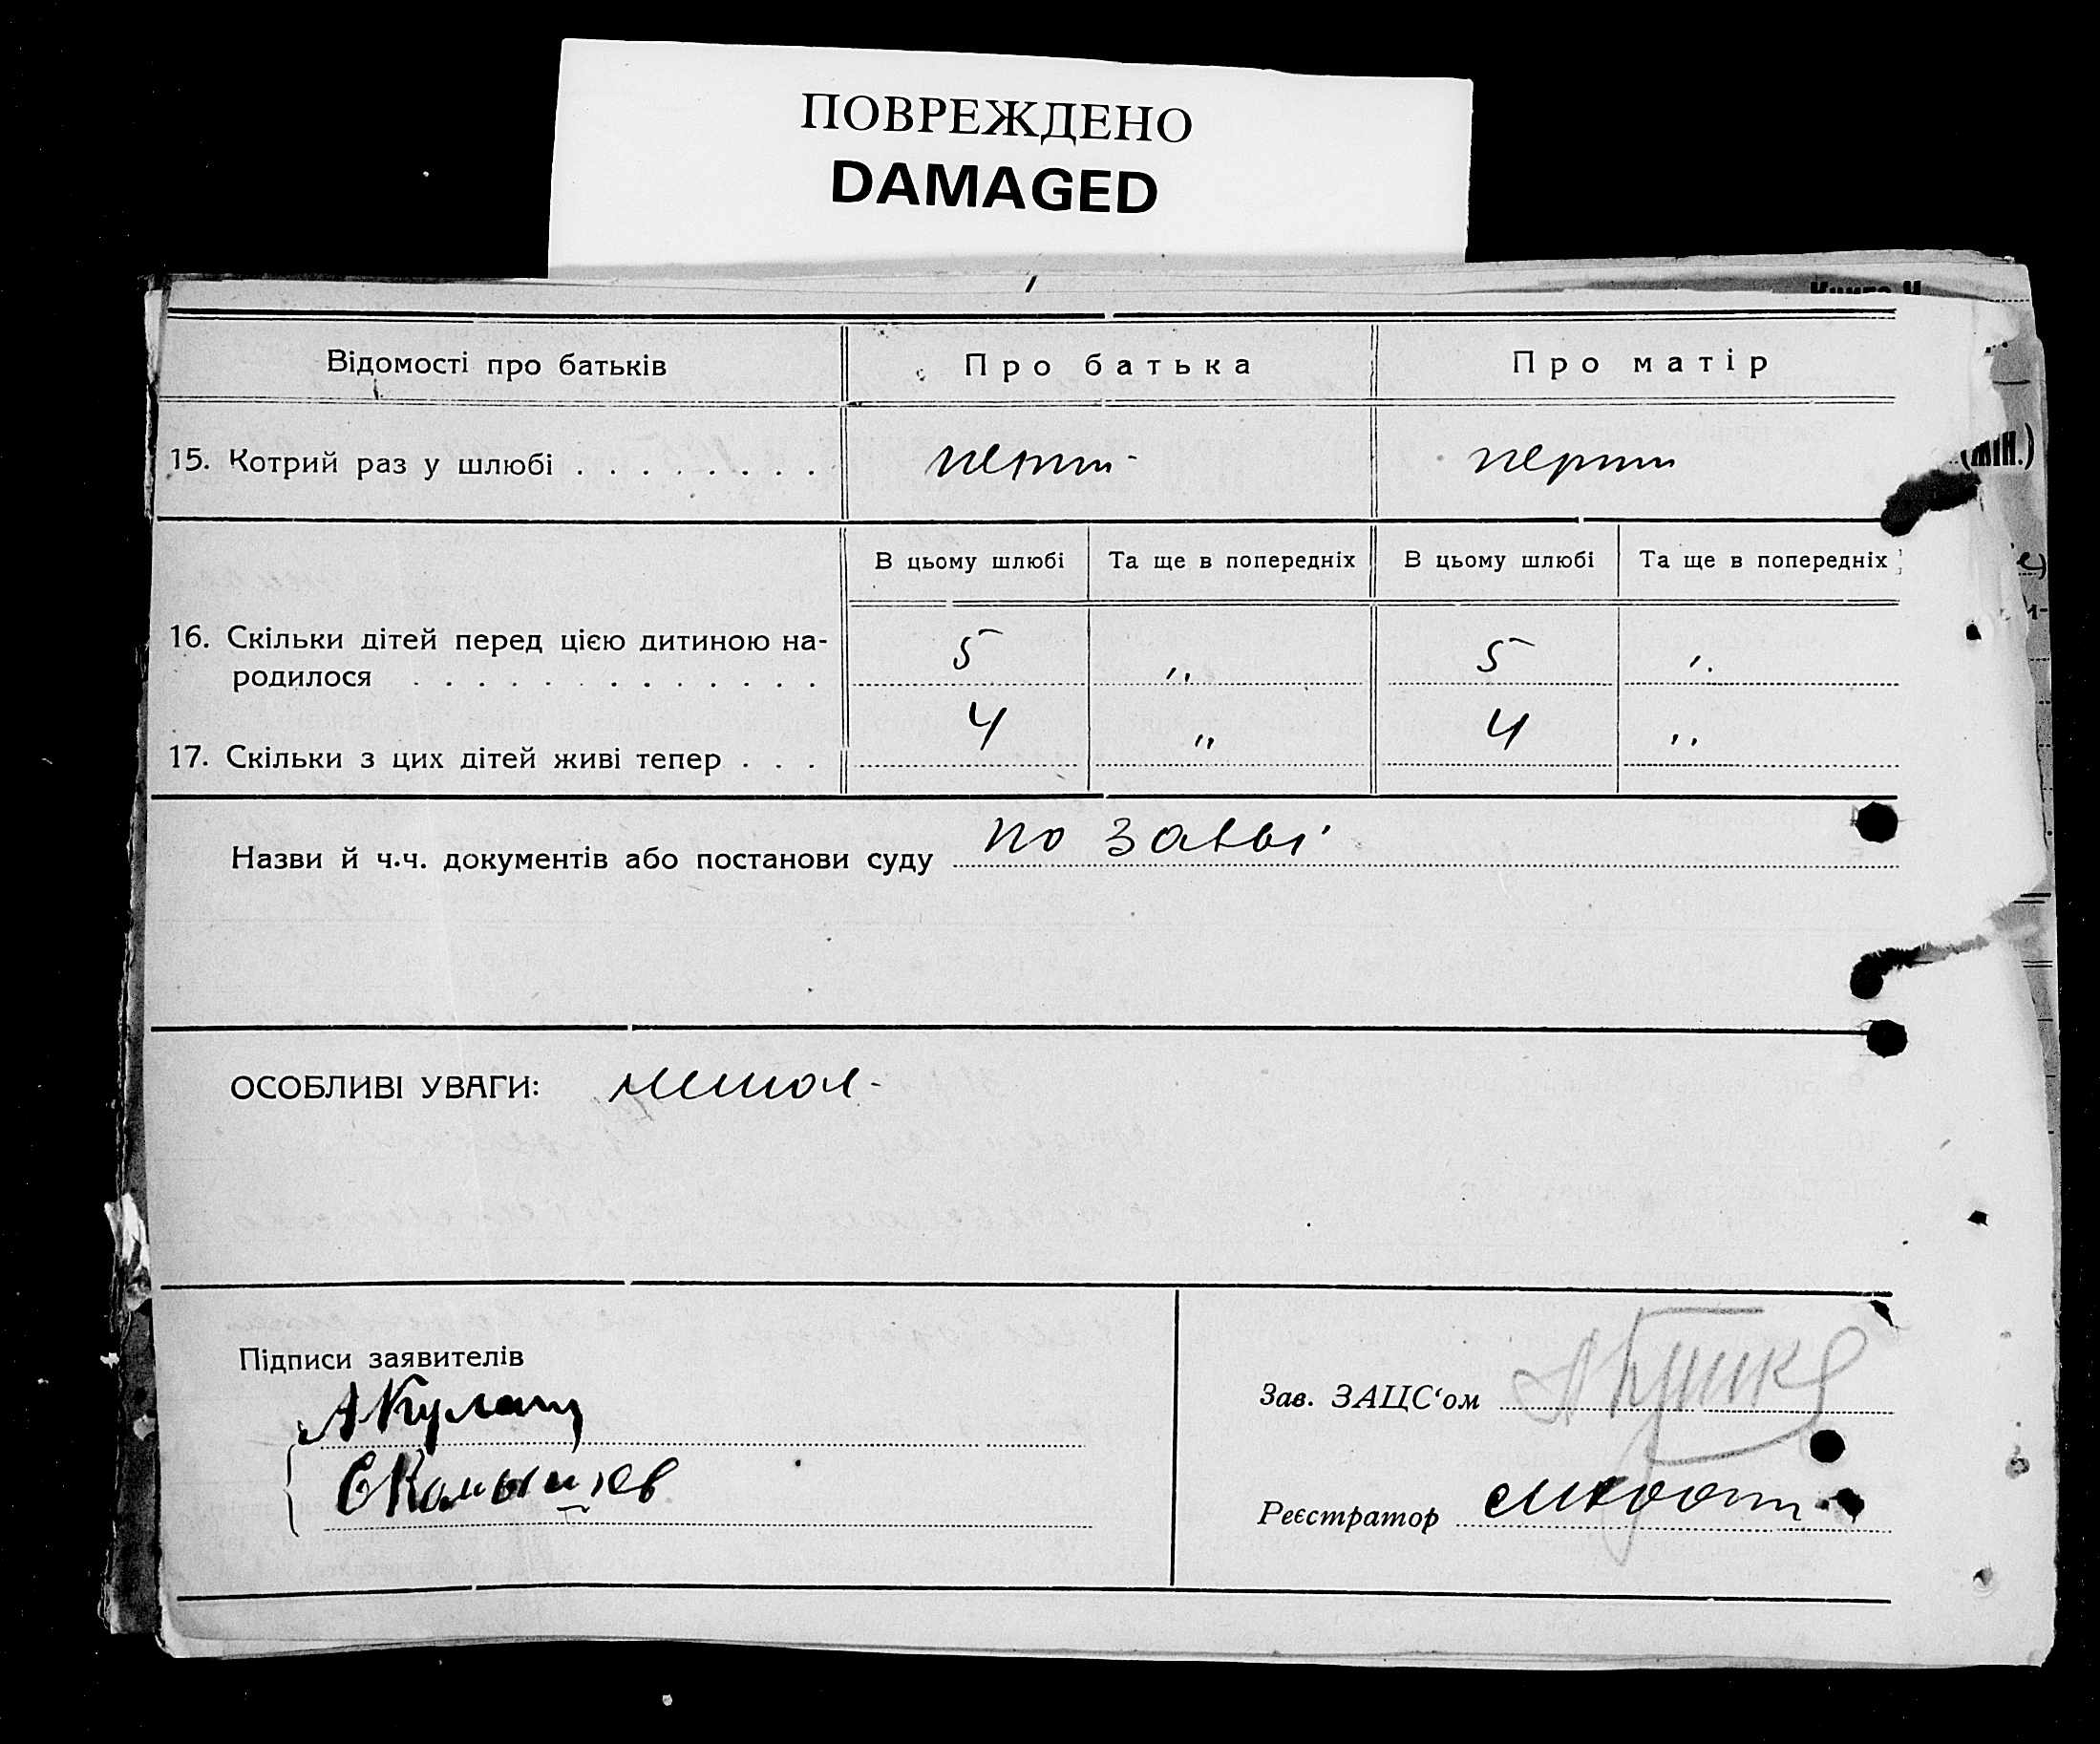 ПОВРЕЖДЕНО
DAMAGED
Відомості про батьків Про батька Про матір
15. Котрий раз у шлюбі . . . . . . . . перши перши
(жін.)
В цьому шлюбі Та ще в попередніх В цьому шлюбі Та ще в попередніх
16. Скільки дітей перед цією дитиною на-
родилося . . . . . . . . . . . . . 5 „ 5 „
17. Скільки з цих дітей живі тепер . . . 4 „ 4 „
Назви й ч.ч. документів або постанови суду по заяві
ОСОБЛИВІ УВАГИ:
Підписи заявителів
Зав. ЗАЦС‘ом
Реєстратор